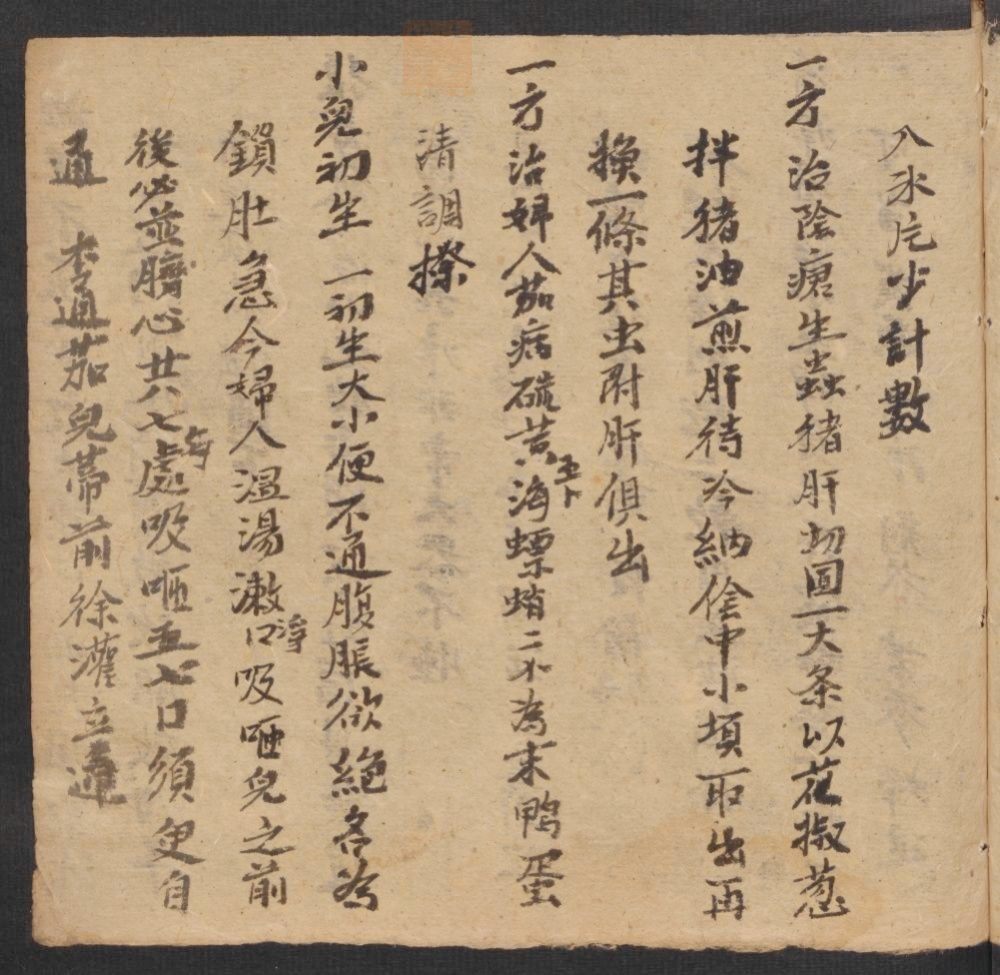 入氷片少計數
一方 治陰瘡生蟲猪肝切圓一大条以花椒葱
拌猪油煎肝待冷納陰中小頃取出再
換一條其虫附肝俱出
一方治婦人茄病硫黃海螵蛸二小為末鴨蛋
清調搽
小兒初生 一初生大小便不通腹脹欲絕名為
鎖肚急令婦人温湯漱口吸咂兒之前
後心並臍心共七處每吸咂五七口須臾自
通 李通茄兒蒂前徐灌立通